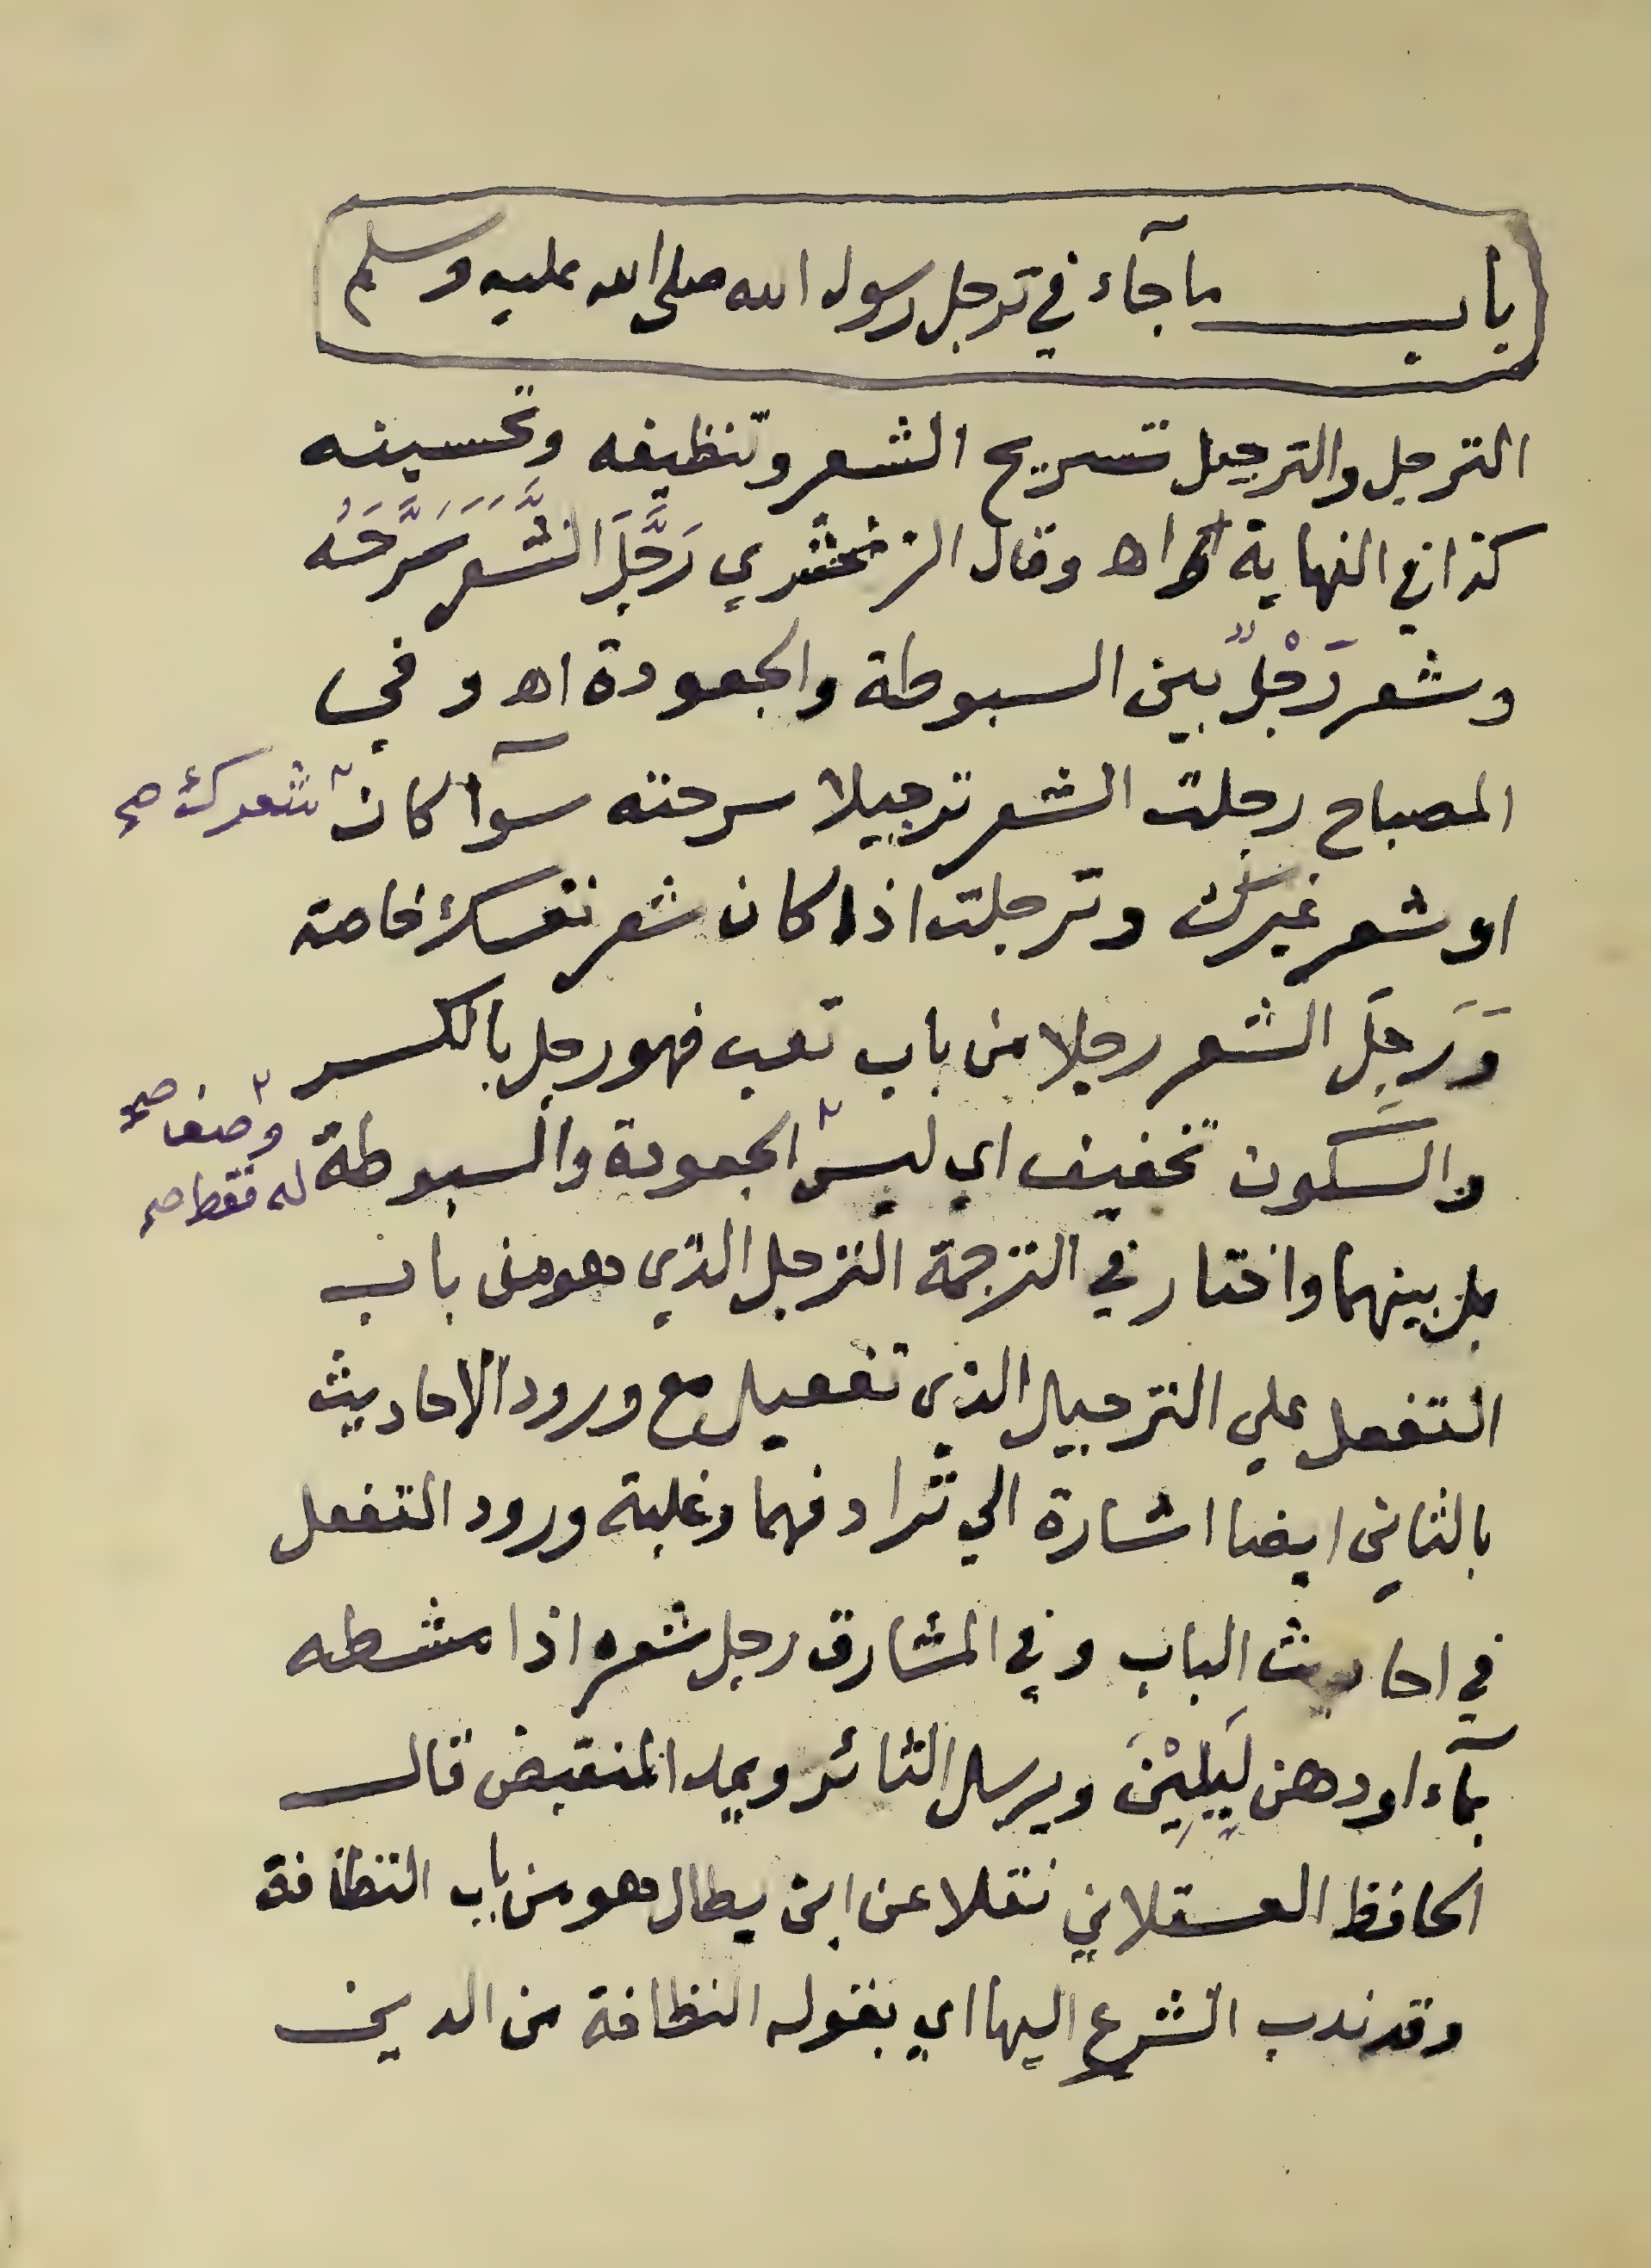 باب ما جآء في ترجل رسول الله صلى الله عليه وسلم
الترجل والترجيل تسريح الشعر وتنظيفه وتحسينه
كذا في النهاية اه وقال الزمخشري رَجَّلَ الشَّعَرَ سَرَّحَهُ
وشعر رَجْلٌ بين السبوطة والجعودة اه وفي
المصباح رجلت الشعر ترجيلا سرحته سوآ كان
شعرك صح
او شعر غيرك وترجلت اذا كان شعر نفسك خاصة
وَرَجِلَ الشعر رجلا من باب تعب فهو رجل بالكسر
والسكون تخفيف اي ليس الجعودة والسبوطة
وصفا صح
له فقط صح
بل بينهما واختار في الترجمة الترجل الذي هو من باب
التفعل علي الترجيل الذي تفعيل مع ورود الاحاديث
بالثاني ايضا اشارة الي ترادفهما وغلبة ورود التفعل
في احاديث الباب وفي المشارق رجل شعره اذا مشطه
بمآء او دهن لِيَلِيْنَ ويرسل الثائر ويمد المنقبض قال
الحافظ العسقلاني نقلا عن ابن بطال وهو من باب النظافة
وقد ندب الشرع اليها اي بقوله النظافة من الدين